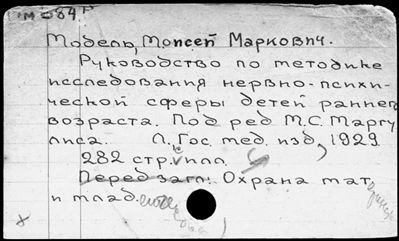 М-84
Модель, Моисей Маркович.
Руководство по методике
исследования нервно-психи-
ческой сферы детей раннего
возраста. Под ред М.С. Маргу
лиса. Л., Гос. мед. изд, 1929
282 стр. с илл.
Перед загл: Охрана мат.
и млад.